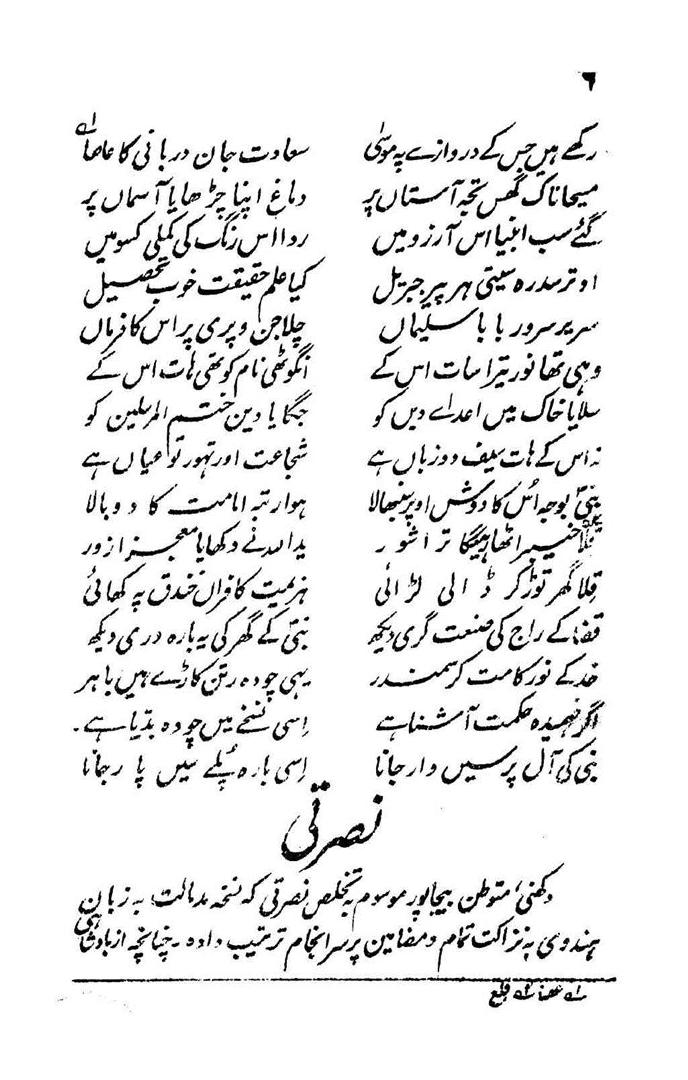 ۶
رکھے ہیں جس کے دروازے پہ موسیٰ سعادت جان دربانی کا عاصا
مسیحا ناک گھس تجہ آستاں پر دماغ اپنا چڑھایا آسماں پر
گئے سب انبیا اس آرزو میں ردا اس رنگ کی کملی کسو میں
اوتر سدرہ سیتی ہر پیر جبریل کیا علم حقیقت خوب تحصیل
سریر سرور با با سلیماں چلا جن و پری پر اس کا فرماں
وہی تھا نور تیرا سات اس کے انگوٹھی نام کو تھی ہات اس کے
سلایا خاک میں اعداے دیں کو جگایا دین ختم المرسلین کو
نہ اس کے ہات سیف دو زباں ہے شجاعت اور تہور تو عیاں ہے
نبیؐ بوجہ اُس کا دوش اوپر سنبھالا ہوا رتبہ امامت کا دو بالا
خیبر اٹھا ترا شور یداللہ نے دکھایا معجز ازور
قلا گھر توڑ کر ڈالی لڑائی ہزیمت کافراں خندق پہ کھائی
قضا کے راج کی صنعت گری دیکھ نبیؐ کے گھر کی یہ بارہ دری دیکھ
خدا کے نور کا مت کر سمندر یہی چودہ رتن کاڑے ہیں باہر
اگر فہمیدہ حکمت آشنا ہے اِسی نسخے میں چودہ بدیا ہے۔
نبی کی آل پر سیں وار جانا اِسی بارہ پُلے سیں پار جانا
نصرتی
دکھنی، متوطن بیجاپور موسوم بہ تخلص نصرتی کہ نسخہ مدالت بہ زبان
ہندوی بہ نزاکت تمام و مضامین پر سرانجام ترتیب دادہ۔ چنانچہ از بادشاہی